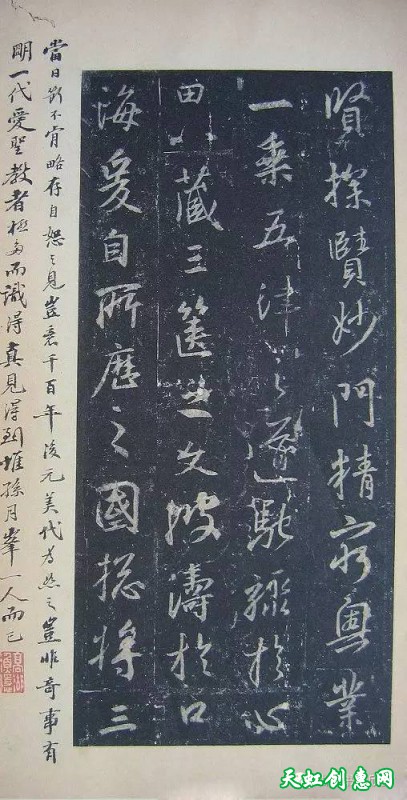 賢探賾妙門精窮奧業
一乘五律之道馳驟於心
田八藏三篋之文波濤於口
海爰自所歷之國揔將三
當日斷不肯略存自恕之見豈意千百年後元美代為之豈非奇事有
明一代愛聖教者極多而識得真見得到惟孫月峯一人而已
天虹创惠网